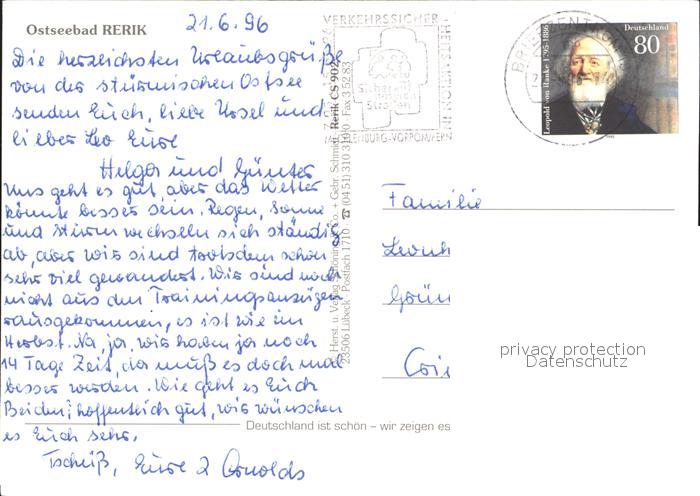 Ostseebad RERIK
21.6.96
Die herzlichsten Urlaubsgrüße
von der stürmischen Ostsee
senden Euch, liebe Ursel und
lieber Leo Eure
Helga und Günter
Uns geht es gut, aber das Wetter
könnte besser sein. Regen, Sonne
und Sturm wechseln sich ständig
ab, aber wir sind trotzdem schon
sehr viel gewandert. Wir sind noch
nicht aus den Trainingsanzügen
rausgekommen, es ist wie im
Herbst. Na, ja, wir haben ja noch
14 Tage Zeit, da muß es doch mal
besser werden. Wie geht es Euch
Beiden? hoffentlich gut, wir wünschen
es Euch sehr.
Tschüß, Eure 2 Arnolds
Deutschland ist schön – wir zeigen es
Rerik CS 902
23506 Lübeck · Postfach 1710 · ☎ (0451) 310 3190 · Fax 35283
VERKEHRSSICHER
Straßen
Deutschland
80
Leopold von Ranke 1795-1886
Familie
Leonh
Grün
privacy protection
Datenschutz